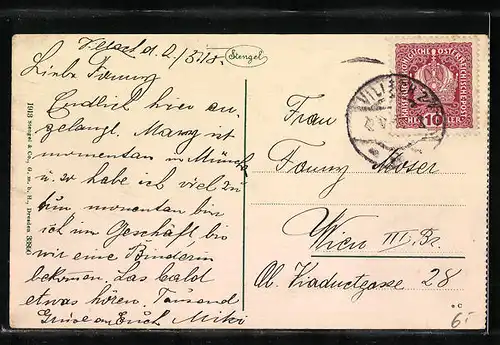 d. 2/5 18.
Stengel
Liebe Fanny
Endlich hier an-
gelangt. Maxy ist
momentan in Münch.
u. so habe ich viel zu
tun, momentan bin
ich im Geschäft, bis
wir eine Binderin
bekommen. Las bald
etwas hören. Tausend
Grüsse an Euch Mitzi
1913 Stengel & Co., G. m. b. H., Dresden
10
HELLER
Frau
Fanny Moser
Wien III. Bz.
Ob. Viaductgasse 28
6.-